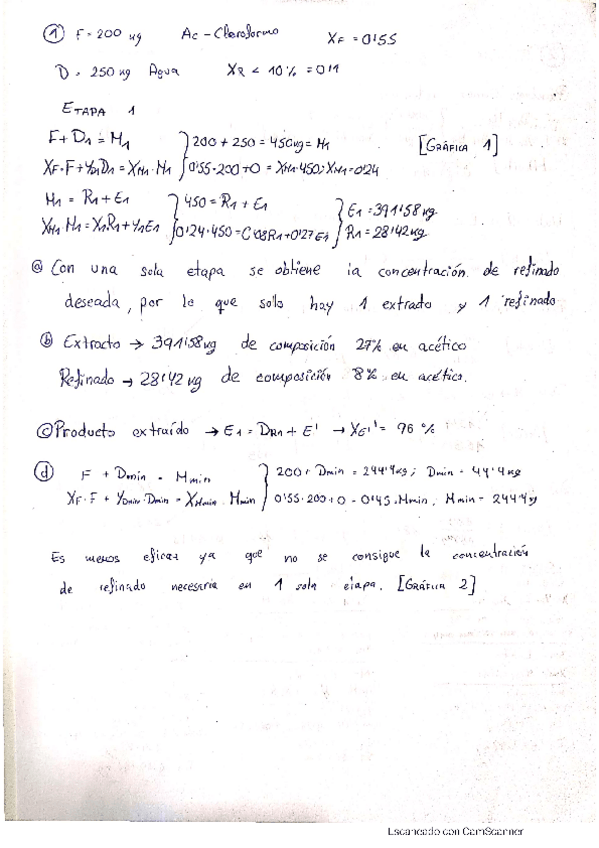 ① F = 200 kg Ac - Cloroformo XF = 0'55
D = 250 kg Agua XR < 10% = 0'1
ETAPA 1
F + D1 = M1 } 200 + 250 = 450kg = M1 [GRÁFICA 1]
XF·F + YD1·D1 = XM1·M1 } 0'55·200 + 0 = XM1·450; XM1 = 0'24
M1 = R1 + E1 } 450 = R1 + E1 } E1 = 391'58 kg
XM1 M1 = X1R1 + Y1E1 } 0'24·450 = 0'08R1 + 0'27E1 } R1 = 28'42 kg
ⓐ Con una sola etapa se obtiene la concentración de refinado
deseada, por lo que solo hay 1 extrado y 1 refinado
ⓑ Extracto → 391'58 kg de composición 27% en acético
Refinado → 28'42 kg de composición 8% en acético.
ⓒ Producto extraído → E1 = DR1 + E' → YE1' = 96 %
ⓓ F + Dmín = Mmin } 200 + Dmin = 244'4 kg; Dmin = 44'4 kg
XF·F + YDmin·Dmin = XMmin·Mmin } 0'55·200 + 0 = 0'45·Mmin; Mmin = 244'4 kg
Es menos eficaz ya que no se consigue la concentración
de refinado necesaria en 1 sola etapa. [GRÁFICA 2]
Escaneado con CamScanner